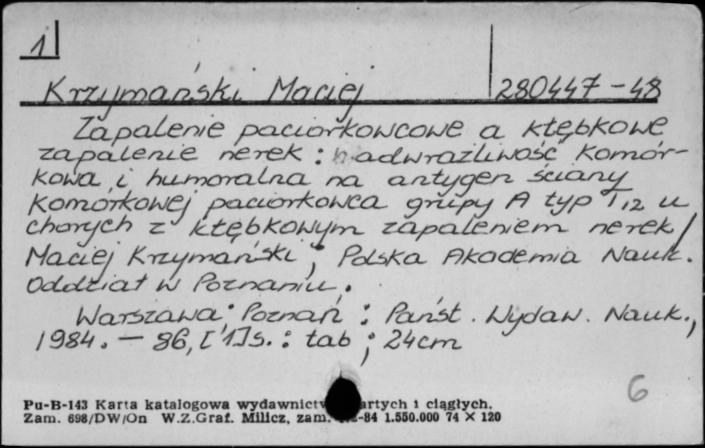 1
Krzymański Maciej 280447-48
Zapalenie paciorkowcowe a kłębkowe
zapalenie nerek : nadwrażliwość komór-
kowa i humoralna na antygen ściany
komórkowej paciorkowca grupy A typ T12 u
chorych z kłębkowym zapaleniem nerek /
Maciej Krzymański ; Polska Akademia Nauk.
Oddział w Poznaniu.
Warszawa ; Poznań : Państ. Wydaw. Nauk.,
1984. — 86, [1]s. : tab ; 24cm
6
Pu-B-143 Karta katalogowa wydawnictw zwartych i ciągłych.
Zam. 698/DW/On W.Z.Graf. Milicz, zam. -84 1.550.000 74 X 120